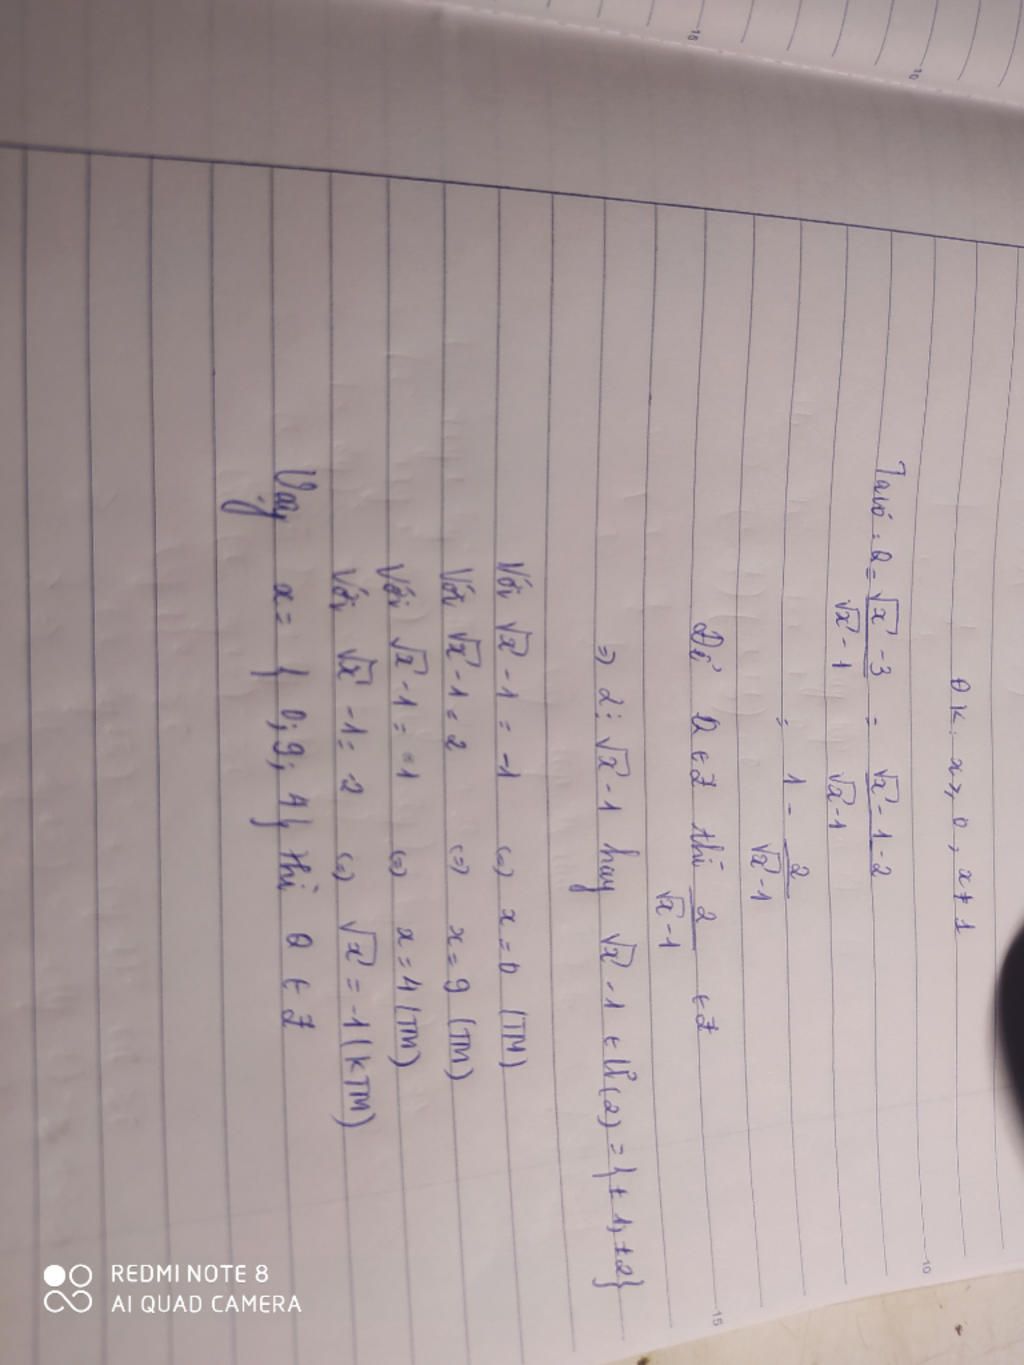 ĐK: x ≥ 0, x ≠ 1
Ta có: Q = (√x - 3)/(√x - 1) = (√x - 1 - 2)/(√x - 1)
= 1 - 2/(√x - 1)
Để Q ∈ Z thì 2/(√x - 1) ∈ Z
⇒ 2 ⋮ √x - 1 hay √x - 1 ∈ Ư(2) = {±1, ±2}
Với √x - 1 = -1 (=) x = 0 (TM)
Với √x - 1 = 2 (=) x = 9 (TM)
Với √x - 1 = 1 (=) x = 4 (TM)
Với √x - 1 = -2 (=) √x = -1 (KTM)
Vậy x = {0; 9; 4} thì Q ∈ Z
10
10
10
15
REDMI NOTE 8
AI QUAD CAMERA